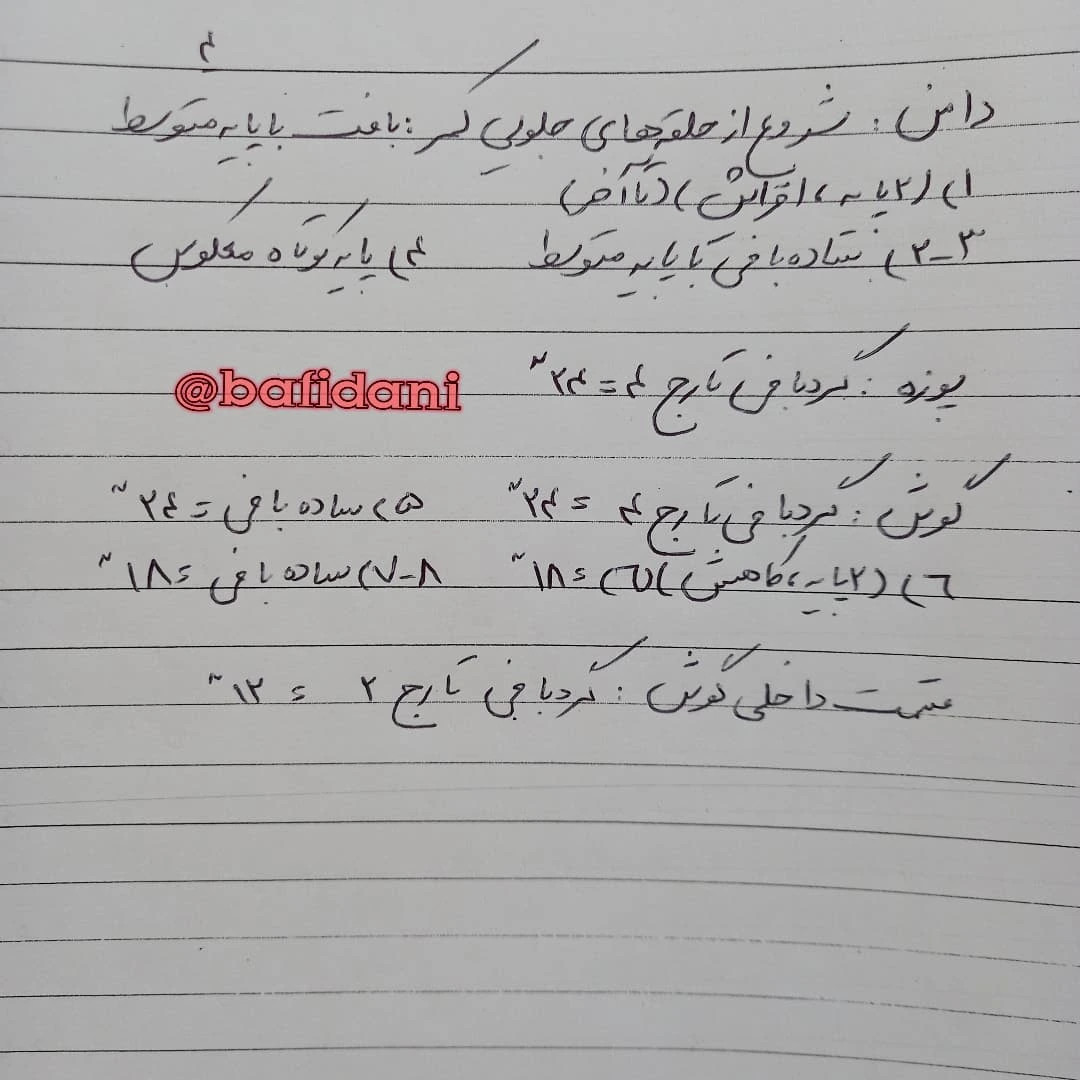 ۴
دامن : شروع از حلقه‌های جلویی کمر : بافت با پایه متوسط
۱) (۲ پایه ، افزایش) (تا آخر)
۲-۳) ساده بافی با پایه متوسط ۴) پایه کوتاه معکوس
پوزه : گردبافی تا رج ۴ = ۲۴~
@bafidani
گوش : گردبافی تا رج ۴ = ۲۴~ ۵) ساده بافی = ۲۴~
۶) (۲ پایه ، کاهش) (۶) = ۱۸~ ۷-۸) ساده بافی = ۱۸~
قسمت داخلی گوش : گردبافی تا رج ۲ = ۱۲~